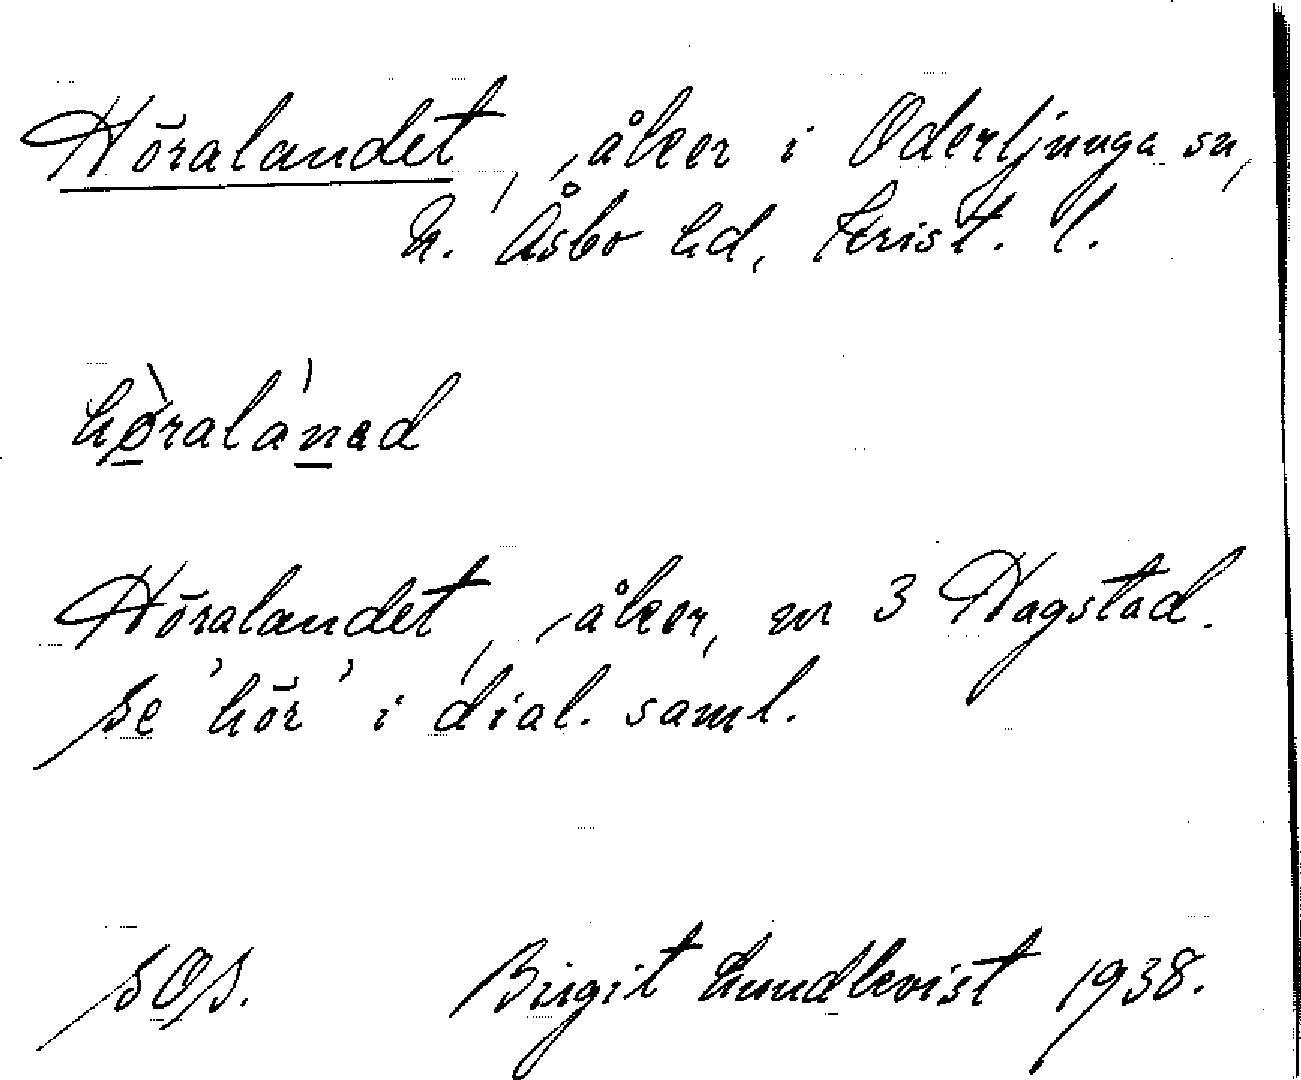 Höralandet, åker i Oderljunga sn,
N. Åsbo hd, Krist. l.
høralànəd
Höralandet, åker, nr 3 Hagstad.
Se 'hör' i dial. saml.
SOS. Birgit Lundkvist 1938.